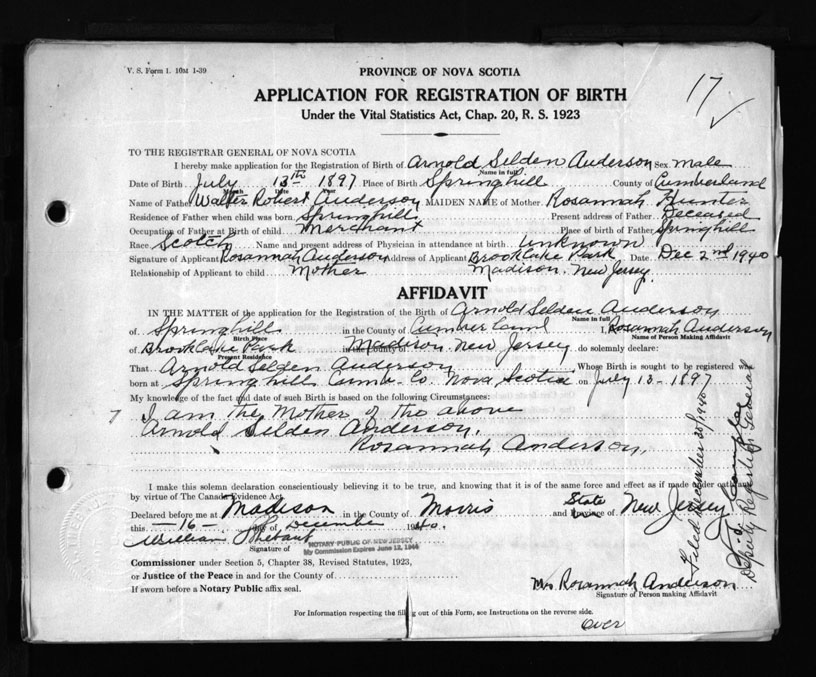 V. S. Form 1. 10M 1-39
17 ✓
PROVINCE OF NOVA SCOTIA
APPLICATION FOR REGISTRATION OF BIRTH
Under the Vital Statistics Act, Chap. 20, R. S. 1923
TO THE REGISTRAR GENERAL OF NOVA SCOTIA
I hereby make application for the Registration of Birth of Arnold Selden Anderson Sex male
Name in full
Date of Birth July 13th 1897 Place of Birth Springhill County of Cumberland
Month Date Year
Name of Father Walter Robert Anderson MAIDEN NAME of Mother Rosannah Hunter
Residence of Father when child was born Springhill Present address of Father Deceased
Occupation of Father at Birth of child Merchant Place of birth of Father Springhill
Race Scotch Name and present address of Physician in attendance at birth unknown
Signature of Applicant Rosannah Anderson Address of Applicant Brooklake Park Date Dec 2nd 1940
Relationship of Applicant to child Mother Madison. New Jersey.
AFFIDAVIT
IN THE MATTER of the application for Registration of the Birth of Arnold Selden Anderson
Name in full
of Springhill in the County of Cumberland I, Rosannah Anderson
Birth Place Name of Person Making Affidavit
of Brooklake Park Madison New Jersey do solemnly declare:
Present Residence
That Arnold Selden Anderson Whose Birth is sought to be registered was
born at Springhill Cumb. Co. Nova Scotia on July 13-1897
My knowledge of the fact and date of such Birth is based on the following Circumstances:
I am the Mother of the above
Arnold Selden Anderson.
Rosannah Anderson.
I make this solemn declaration conscientiously believing it to be true, and knowing that it is of the same force and effect as if made under oath and
by virtue of The Canada Evidence Act.
Declared before me at Madison in the County of Morris State and Province of New Jersey
this -16- day of December 1940.
William
Signature of
NOTARY PUBLIC OF NEW JERSEY
My Commission Expires June 12, 1944
Commissioner under Section 5, Chapter 38, Revised Statutes, 1923,
or Justice of the Peace in and for the County of
If sworn before a Notary Public affix seal.
Mrs Rosannah Anderson
Signature of Person making Affidavit
For Information respecting the filling out of this Form, see Instructions on the reverse side.
over
Filed December 30/1940
Deputy Registrar General